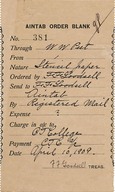 AINTAB ORDER BLANK
No. 381
Through W. W. Peet
From
Nature Stencil paper
Ordered by F. F. Goodsell
Send to F. F. Goodsell
Aintab
By Registered Mail
Expense
Charge in a/c to
C. T. College
Payment
Date April 16, 1909.
F. F. Goodsell TREAS.